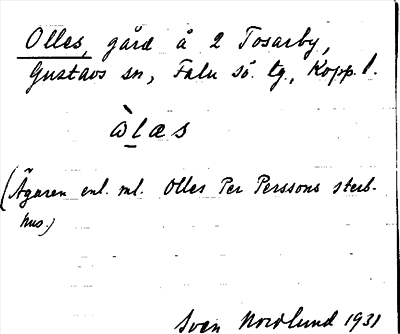 Olles, gård å 2 Tosarby,
Gustavs sn, Falu sö. tg., Kopp. l.
ὼlæs
(Ägaren enl. ml. Olles Per Perssons sterb-
hus.)
Sven Nordlund 1931